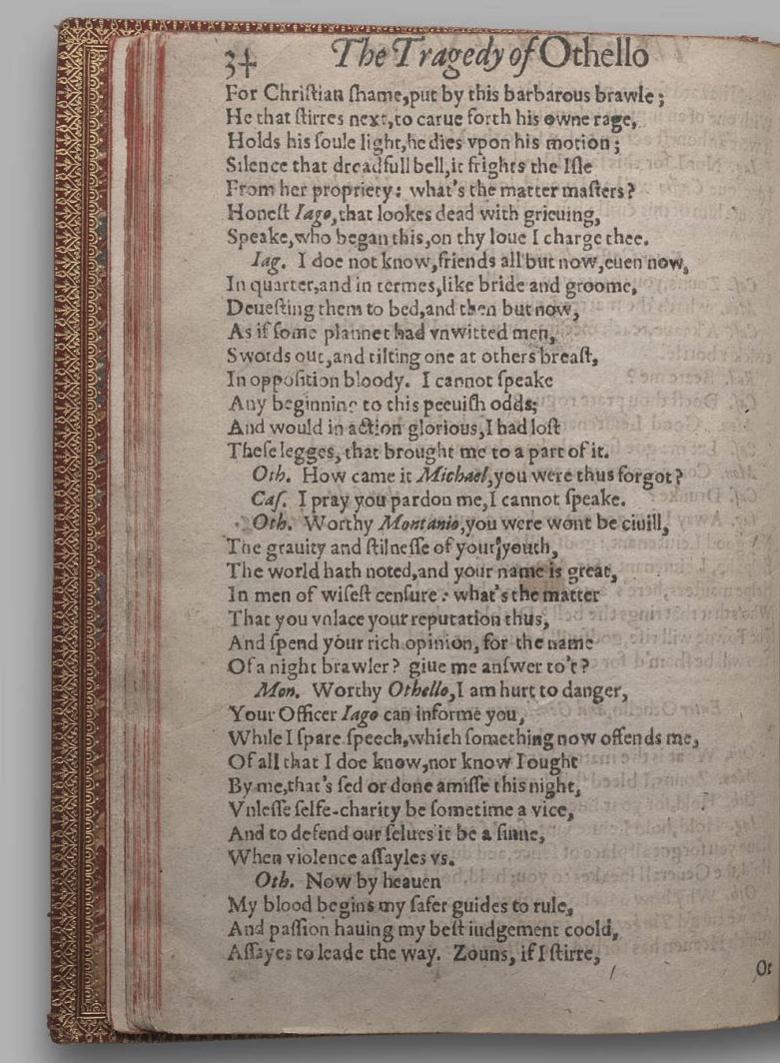 34 The Tragedy of Othello
For Chriſtian ſhame,put by this barbarous brawle;
He that ſtirres next,to carue forth his owne rage,
Holds his ſoule light,he dies vpon his motion;
Silence that dreadfull bell,it frights the Iſle
From her propriety: what's the matter maſters?
Honeſt Iago,that lookes dead with grieuing,
Speake,who began this,on thy loue I charge thee.
Iag. I doe not know,friends all but now,euen now,
In quarter,and in termes,like bride and groome,
Deueſting them to bed,and then but now,
As if ſome plannet had vnwitted men,
Swords out,and tilting one at others breaſt,
In oppoſition bloody. I cannot ſpeake
Any beginning to this peeuiſh odds;
And would in action glorious,I had loſt
Theſe legges, that brought me to a part of it.
Oth. How came it Michael,you were thus forgot?
Caſ. I pray you pardon me,I cannot ſpeake.
Oth. Worthy Montanio,you were wont be ciuill,
The grauity and ſtilneſſe of your youth,
The world hath noted,and your name is great,
In men of wiſeſt cenſure: what's the matter
That you vnlace your reputation thus,
And ſpend your rich opinion, for the name
Of a night brawler? giue me anſwer to't?
Mon. Worthy Othello,I am hurt to danger,
Your Officer Iago can informe you,
While I ſpare ſpeech,which ſomething now offends me,
Of all that I doe know,nor know I ought
By me,that's ſed or done amiſſe this night,
Vnleſſe ſelfe-charity be ſometime a vice,
And to defend our ſelues it be a ſinne,
When violence aſſayles vs.
Oth. Now by heauen
My blood begins my ſafer guides to rule,
And paſſion hauing my beſt iudgement coold,
Aſſayes to leade the way. Zouns, if I ſtirre,
Or